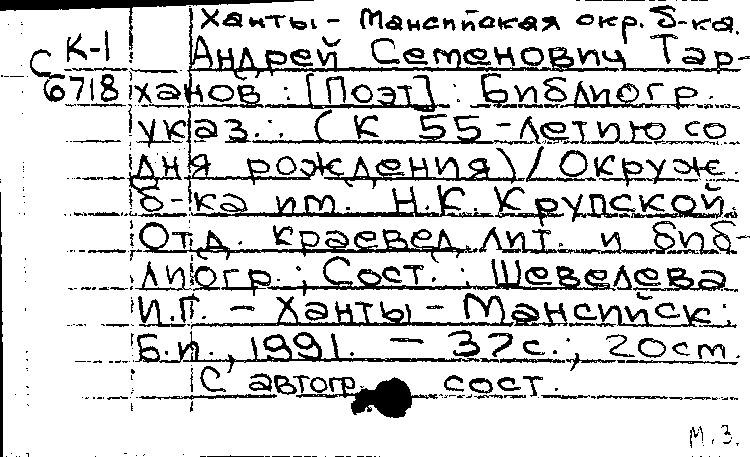 Ханты-Мансийская окр. б-ка.
К-1
С
6718
Андрей Семенович Тар-
ханов : [Поэт] : Библиогр.
указ. : (к 55-летию со
дня рождения) / Окруж.
б-ка им. Н.К. Крупской.
Отд. краевед. лит. и биб-
лиогр. ; Сост. : Шевелева
И.П. - Ханты-Мансийск :
Б.и., 1991. - 37с. ; 20см.
С автогр. сост.
М.З.